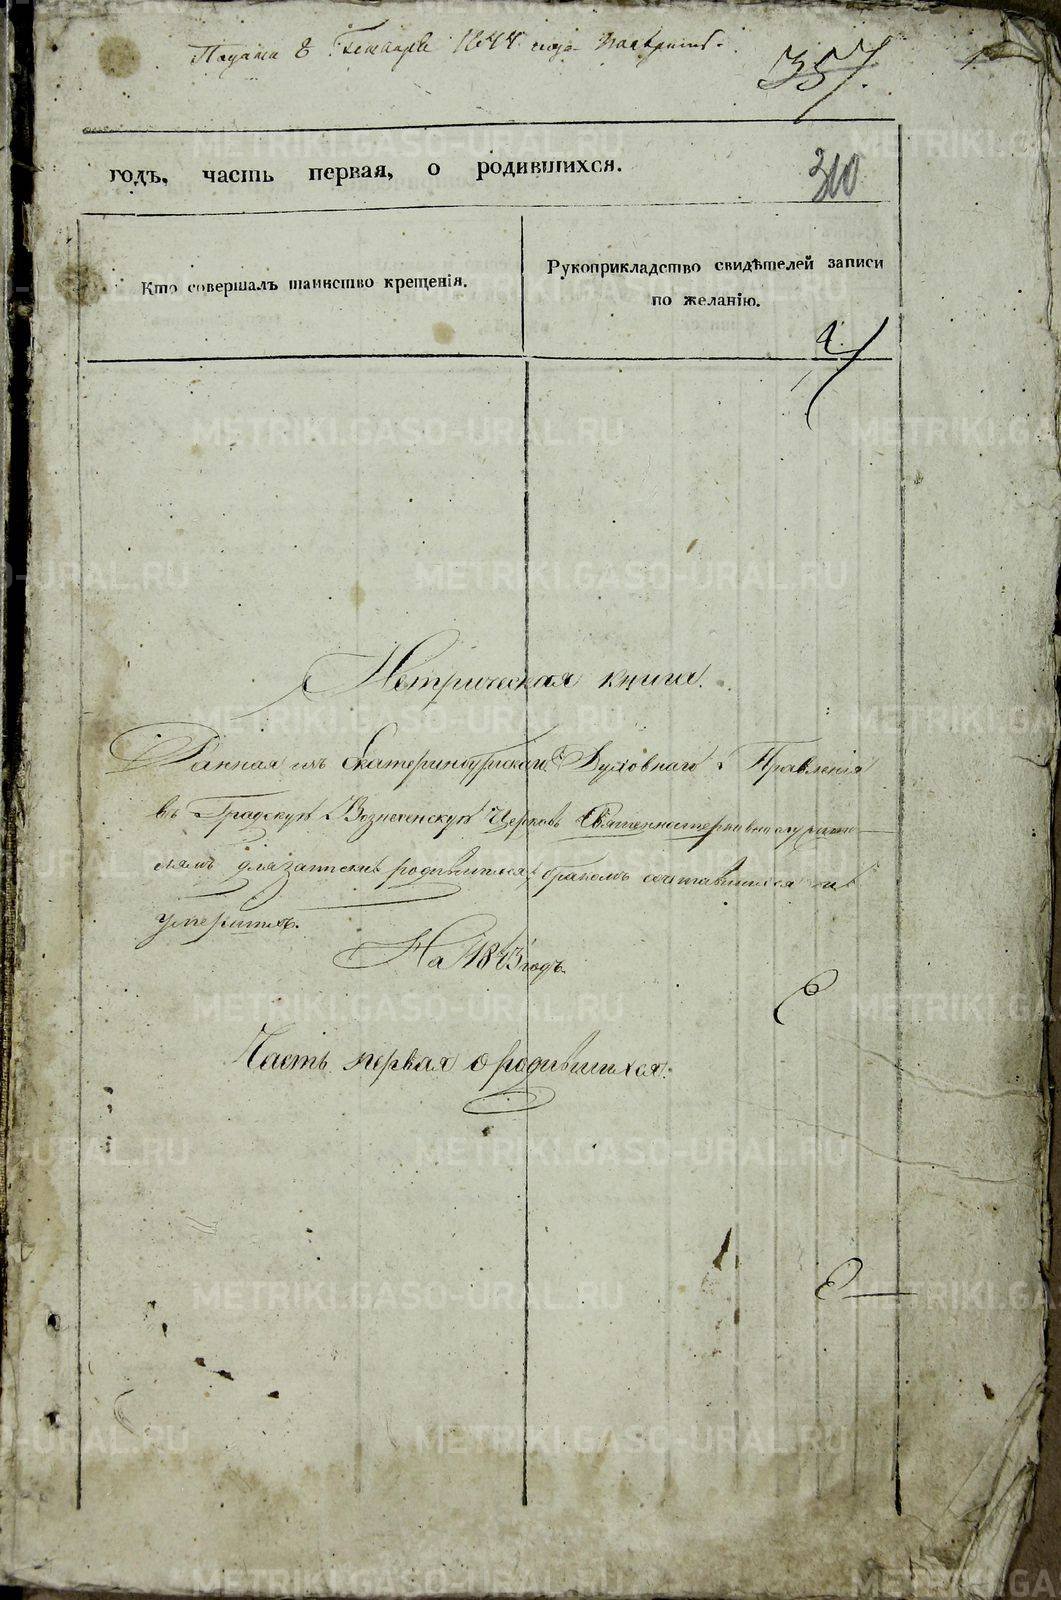 1844 года
357.
годъ, часть первая, о родившихся.
310
Кто совершалъ таинство крещенія.
Рукоприкладство свидѣтелей записи
по желанію.
Метрическая книга.
Данная изъ Екатеринбургскаго Духовнаго Правленія
въ Градскую Вознесенскую Церковь Священноцерковнослужите
лямъ для записки родившихся, бракомъ сочетавшихся и
умершихъ.
На 1843 годъ.
Часть первая о родившихся.
METRIKI.GASO-URAL.RU